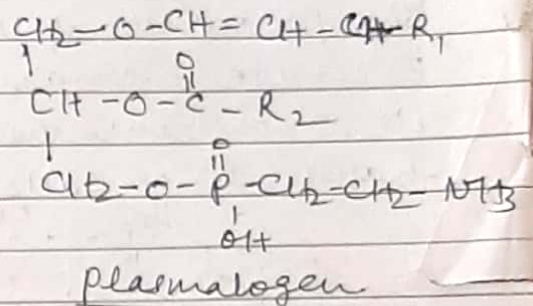 CH2-O-CH=CH-CH-R1
|
O
||
CH-O-C-R2
|
O
||
CH2-O-P-CH2-CH2-NH3
|
OH
plasmalogen